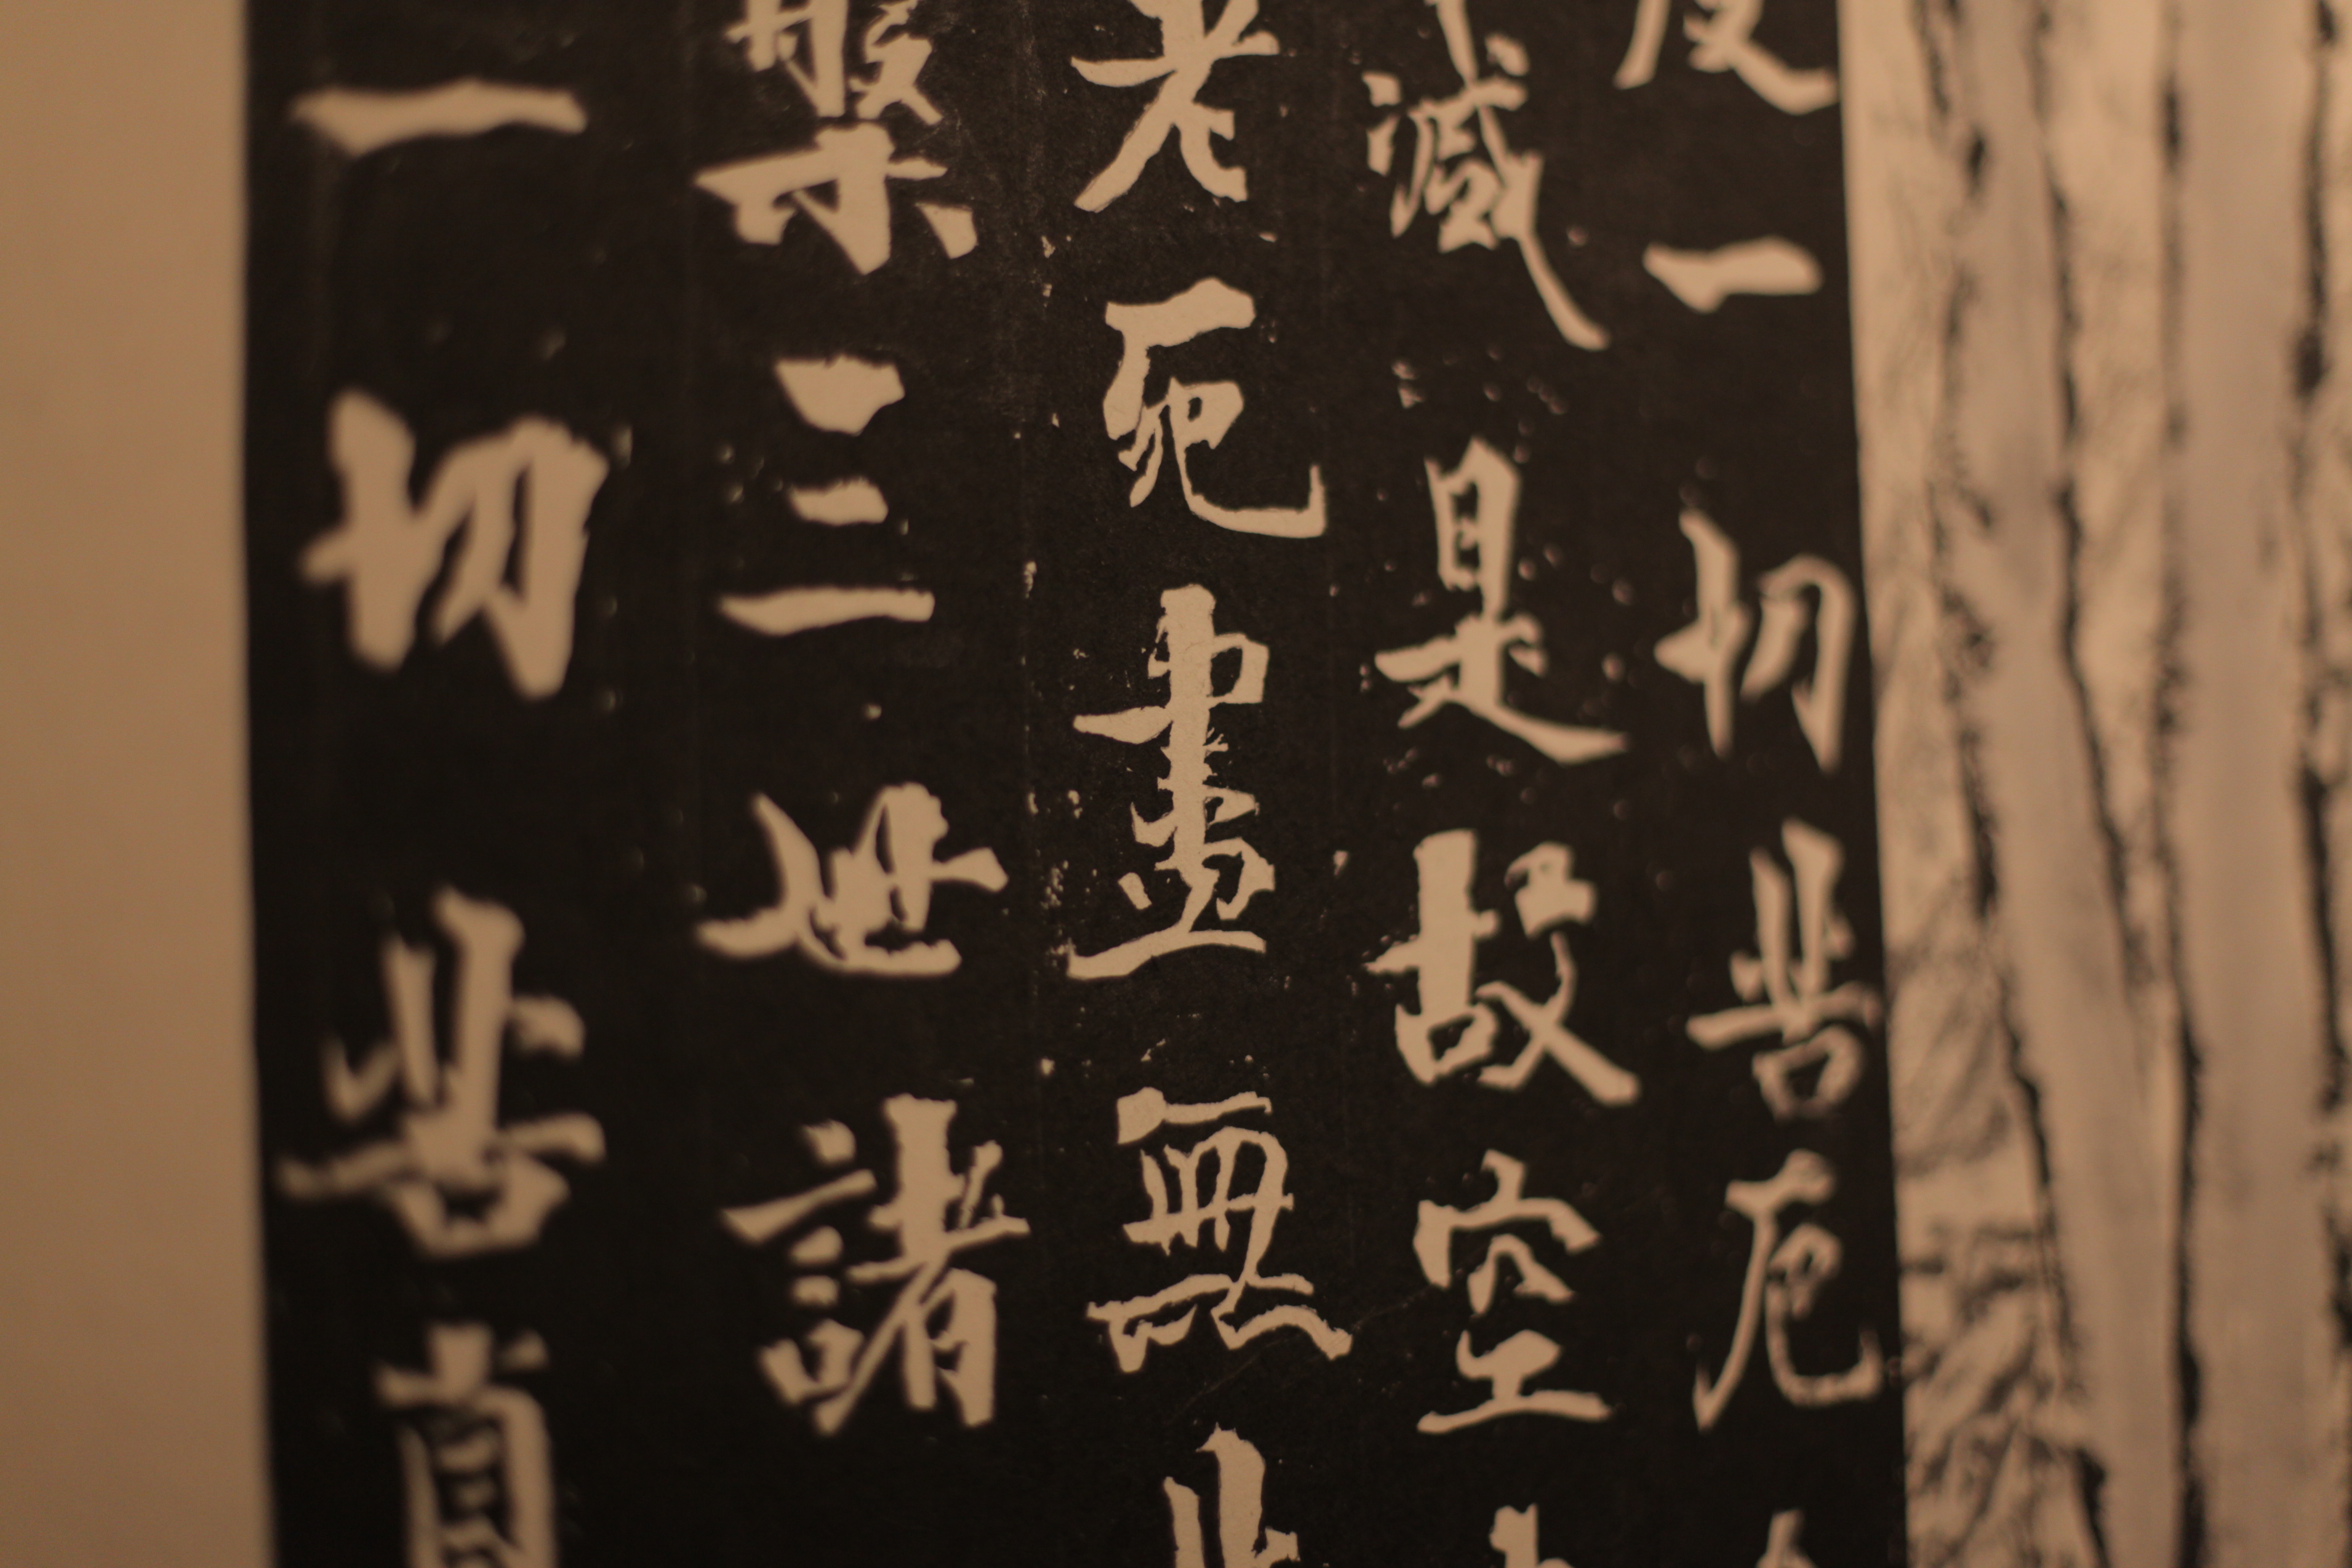 度一切苦厄
減是故空
老死盡無
槃三世諸
一切苦真